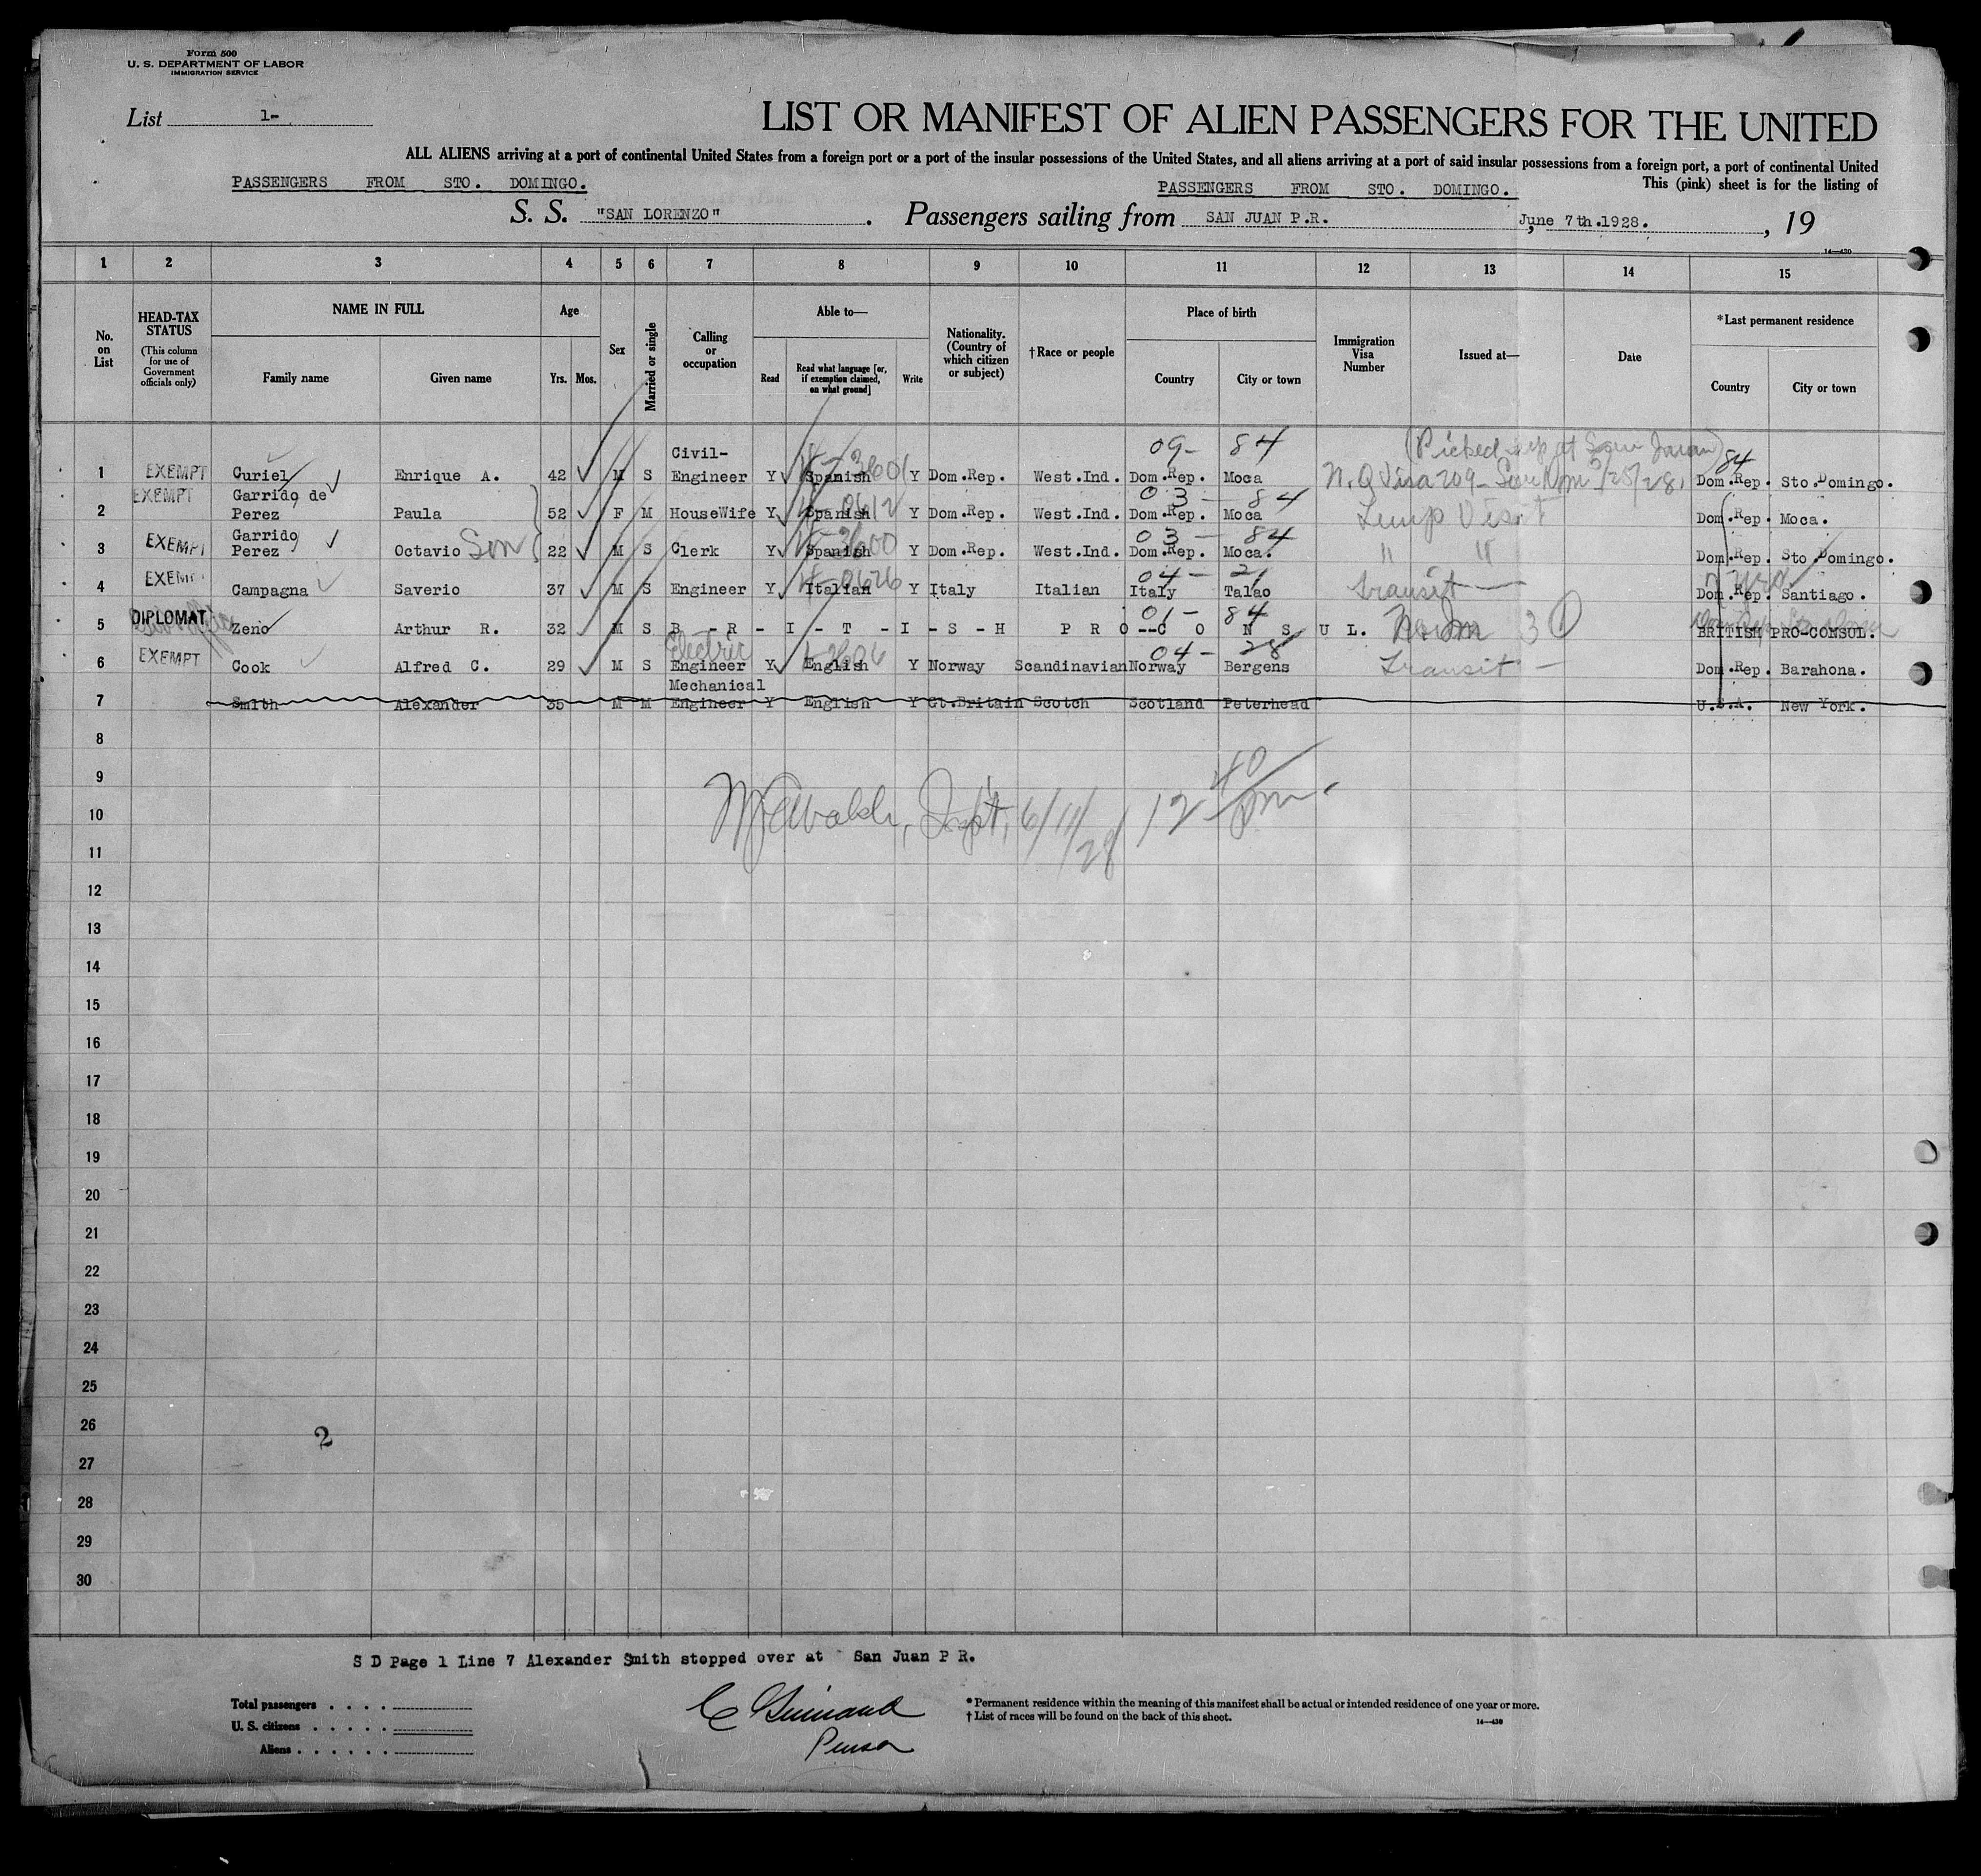 Form 500
U. S. DEPARTMENT OF LABOR
IMMIGRATION SERVICE
List 1-
LIST OR MANIFEST OF ALIEN PASSENGERS FOR THE UNITED
ALL ALIENS arriving at a port of continental United States from a foreign port or a port of the insular possessions of the United States, and all aliens arriving at a port of said insular possessions from a foreign port, a port of continental United
PASSENGERS FROM STO. DOMINGO. PASSENGERS FROM STO. DOMINGO. This (pink) sheet is for the listing of
S. S. "SAN LORENZO" . Passengers sailing from SAN JUAN P.R. , June 7th.1928. , 19
14—430
1 2 3 4 5 6 7 8 9 10 11 12 13 14 15
No. on List
HEAD-TAX STATUS
(This column for use of Government officials only)
NAME IN FULL
Family name Given name
Age
Yrs. Mos.
Sex
Married or single
Calling or occupation
Able to—
Read Read what language [or, if exemption claimed, on what ground] Write
Nationality. (Country of which citizen or subject)
† Race or people
Place of birth
Country City or town
Immigration Visa Number
Issued at—
Date
* Last permanent residence
Country City or town
09- 84 (Picked up at San Juan) 84
1 EXEMPT Curiel Enrique A. 42 M S Civil-Engineer Y Spanish Y Dom.Rep. West.Ind. Dom.Rep. Moca N.Q Visa 209 Dom.Rep. Sto.Domingo.
03 - 84
2 EXEMPT Garrido de Perez Paula 52 F M HouseWife Y Spanish Y Dom.Rep. West.Ind. Dom.Rep. Moca Temp Visit Dom.Rep. Moca.
03 - 84
3 EXEMPT Garrido Perez Octavio Son 22 M S Clerk Y Spanish Y Dom.Rep. West.Ind. Dom.Rep. Moca. " " Dom.Rep. Sto Domingo.
04 - 21
4 EXEMPT Campagna Saverio 37 M S Engineer Y Italian Y Italy Italian Italy Talao transit — Dom.Rep. Santiago.
01 - 84
5 DIPLOMAT Zeno Arthur R. 32 M S B - R - I - T - I - S - H P R O -- C O N S U L. 3 1 BRITISH PRO-CONSUL.
04 - 28
6 EXEMPT Cook Alfred C. 29 M S Electric Engineer Y English Y Norway Scandinavian Norway Bergens Transit — Dom.Rep. Barahona.
7 Smith Alexander 35 M M Mechanical Engineer Y English Y Gt.Britain Scotch Scotland Peterhead U.S.A. New York.
8
9
10
Inspt, 6/11/28 12 40 pm.
11
12
13
14
15
16
17
18
19
20
21
22
23
24
25
26
2
27
28
29
30
S D Page 1 Line 7 Alexander Smith stopped over at San Juan P R.
Total passengers . . . .
U. S. citizens . . . . .
Aliens . . . . . .
Purser
* Permanent residence within the meaning of this manifest shall be actual or intended residence of one year or more.
† List of races will be found on the back of this sheet.
14—430